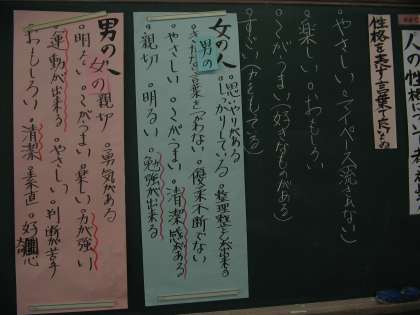 人の性格
性格を表す言葉でたいもの
・やさしい ・マイペース(流されない)
・楽しい ・おもしろい
・〇〇がうまい(好きなものがある)
・すごい
女の人
・思いやりがある
・しっかりしている ・整理整とんが出来る
男の
・きたない言葉をつかわない ・優柔不断でない
・やさしい ・〇〇がうまい ・清潔感がある
・親切 ・明るい ・勉強が出来る
男の人
女の
・親切 ・勇気がある
・明るい ・〇〇がうまい ・楽しい ・力が強い
・運動が出来る ・やさしい ・判断が苦手
・おもしろい ・清潔 ・素直 ・好奇心